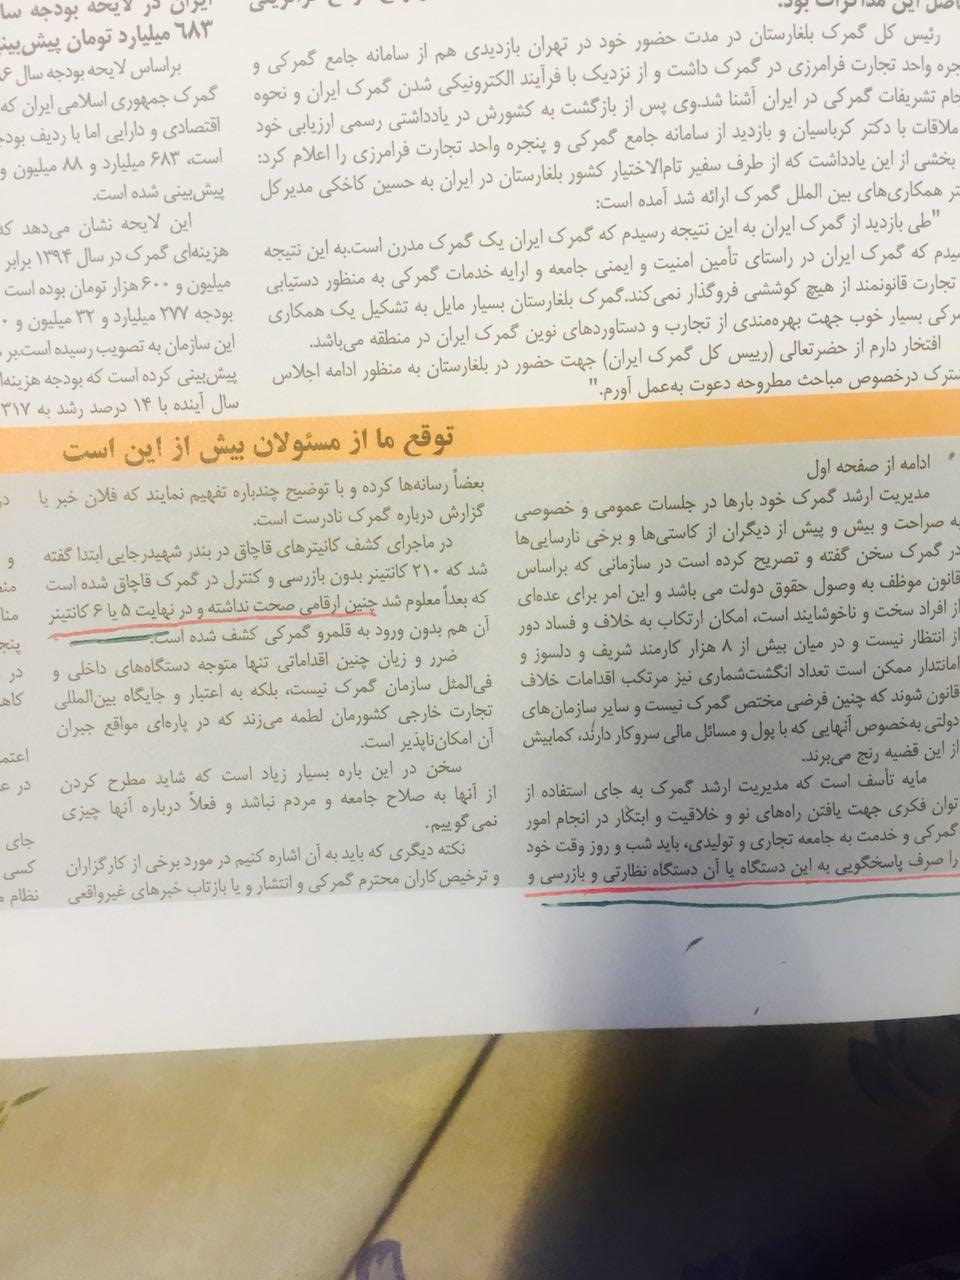 حاصل این مذاکرات بود.
رئیس کل گمرک بلغارستان در مدت حضور خود در تهران بازدیدی هم از سامانه جامع گمرکی و
واحد تجارت فرامرزی در گمرک داشت و از نزدیک با فرآیند الکترونیکی شدن گمرک ایران و نحوه
تشریفات گمرکی در ایران آشنا شد.وی پس از بازگشت به کشورش در یادداشتی رسمی ارزیابی خود
ملاقات با دکتر کرباسیان و بازدید از سامانه جامع گمرکی و پنجره واحد تجارت فرامرزی را اعلام کرد:
بخشی از این یادداشت که از طرف سفیر تام‌الاختیار کشور بلغارستان در ایران به حسین کاخکی مدیرکل
همکاری‌های بین الملل گمرک ارائه شد آمده است:
"طی بازدید از گمرک ایران به این نتیجه رسیدم که گمرک ایران یک گمرک مدرن است.به این نتیجه
که گمرک ایران در راستای تأمین امنیت و ایمنی جامعه و ارایه خدمات گمرکی به منظور دستیابی
تجارت قانونمند از هیچ کوششی فروگذار نمی‌کند.گمرک بلغارستان بسیار مایل به تشکیل یک همکاری
بسیار خوب جهت بهره‌مندی از تجارب و دستاوردهای نوین گمرک ایران در منطقه می‌باشد.
افتخار دارم از حضرتعالی (رییس کل گمرک ایران) جهت حضور در بلغارستان به منظور ادامه اجلاس
درخصوص مباحث مطروحه دعوت به‌عمل آورم."
ایران در لایحه بودجه
۶۸۳ میلیارد تومان پیش‌بینی
براساس لایحه بودجه سال
گمرک جمهوری اسلامی ایران که
اقتصادی و دارایی اما با ردیف
است، ۶۸۳ میلیارد و ۸۸ میلیون و
پیش‌بینی شده است.
این لایحه نشان می‌دهد که
هزینه‌ای گمرک در سال ۱۳۹۴ برابر
میلیون و ۶۰۰ هزار تومان بوده است
بودجه ۲۷۷ میلیارد و ۳۲ میلیون و
این سازمان به تصویب رسیده است.
پیش‌بینی کرده است که بودجه
سال آینده با ۱۴ درصد رشد به ۳۱۷
توقع ما از مسئولان بیش از این است
ادامه از صفحه اول
مدیریت ارشد گمرک خود بارها در جلسات عمومی و خصوصی
به صراحت و بیش و پیش از دیگران از کاستی‌ها و برخی نارسایی‌ها
در گمرک سخن گفته و تصریح کرده است در سازمانی که براساس
قانون موظف به وصول حقوق دولت می باشد و این امر برای عده‌ای
از افراد سخت و ناخوشایند است، امکان ارتکاب به خلاف و فساد دور
از انتظار نیست و در میان بیش از ۸ هزار کارمند شریف و دلسوز و
امانتدار ممکن است تعداد انگشت‌شماری نیز مرتکب اقدامات خلاف
قانون شوند که چنین فرضی مختص گمرک نیست و سایر سازمان‌های
دولتی به‌خصوص آنهایی که با پول و مسائل مالی سروکار دارند، کمابیش
از این قضیه رنج می‌برند.
مایه تأسف است که مدیریت ارشد گمرک به جای استفاده از
توان فکری جهت یافتن راه‌های نو و خلاقیت و ابتکار در انجام امور
گمرکی و خدمت به جامعه تجاری و تولیدی، باید شب و روز وقت خود
را صرف پاسخگویی به این دستگاه یا آن دستگاه نظارتی و بازرسی و
بعضاً رسانه‌ها کرده و با توضیح چندباره تفهیم نمایند که فلان خبر یا
گزارش درباره گمرک نادرست است.
در ماجرای کشف کانیترهای قاچاق در بندر شهیدرجایی ابتدا گفته
شد که ۲۱۰ کانتینر بدون بازرسی و کنترل در گمرک قاچاق شده است
که بعداً معلوم شد چنین ارقامی صحت نداشته و در نهایت ۵ یا ۶ کانتینر
آن هم بدون ورود به قلمرو گمرکی کشف شده است.
ضرر و زیان چنین اقداماتی تنها متوجه دستگاه‌های داخلی و
فی‌المثل سازمان گمرک نیست، بلکه به اعتبار و جایگاه بین‌المللی
تجارت خارجی کشورمان لطمه می‌زند که در پاره‌ای مواقع جبران
آن امکان‌ناپذیر است.
سخن در این باره بسیار زیاد است که شاید مطرح کردن
از آنها به صلاح جامعه و مردم نباشد و فعلاً درباره آنها چیزی
نمی‌گوییم.
نکته دیگری که باید به آن اشاره کنیم در مورد برخی از کارگزاران
و ترخیص‌کاران محترم گمرکی و انتشار و یا بازتاب خبرهای غیرواقعی
در
و
پنج
در
جای
کسی
نظام